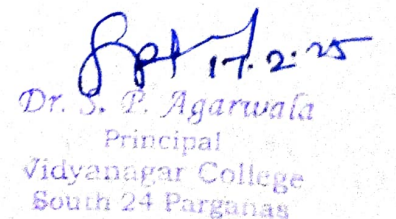 17.2.25
Dr. S. P. Agarwala
Principal
Vidyanagar College
South 24 Parganas